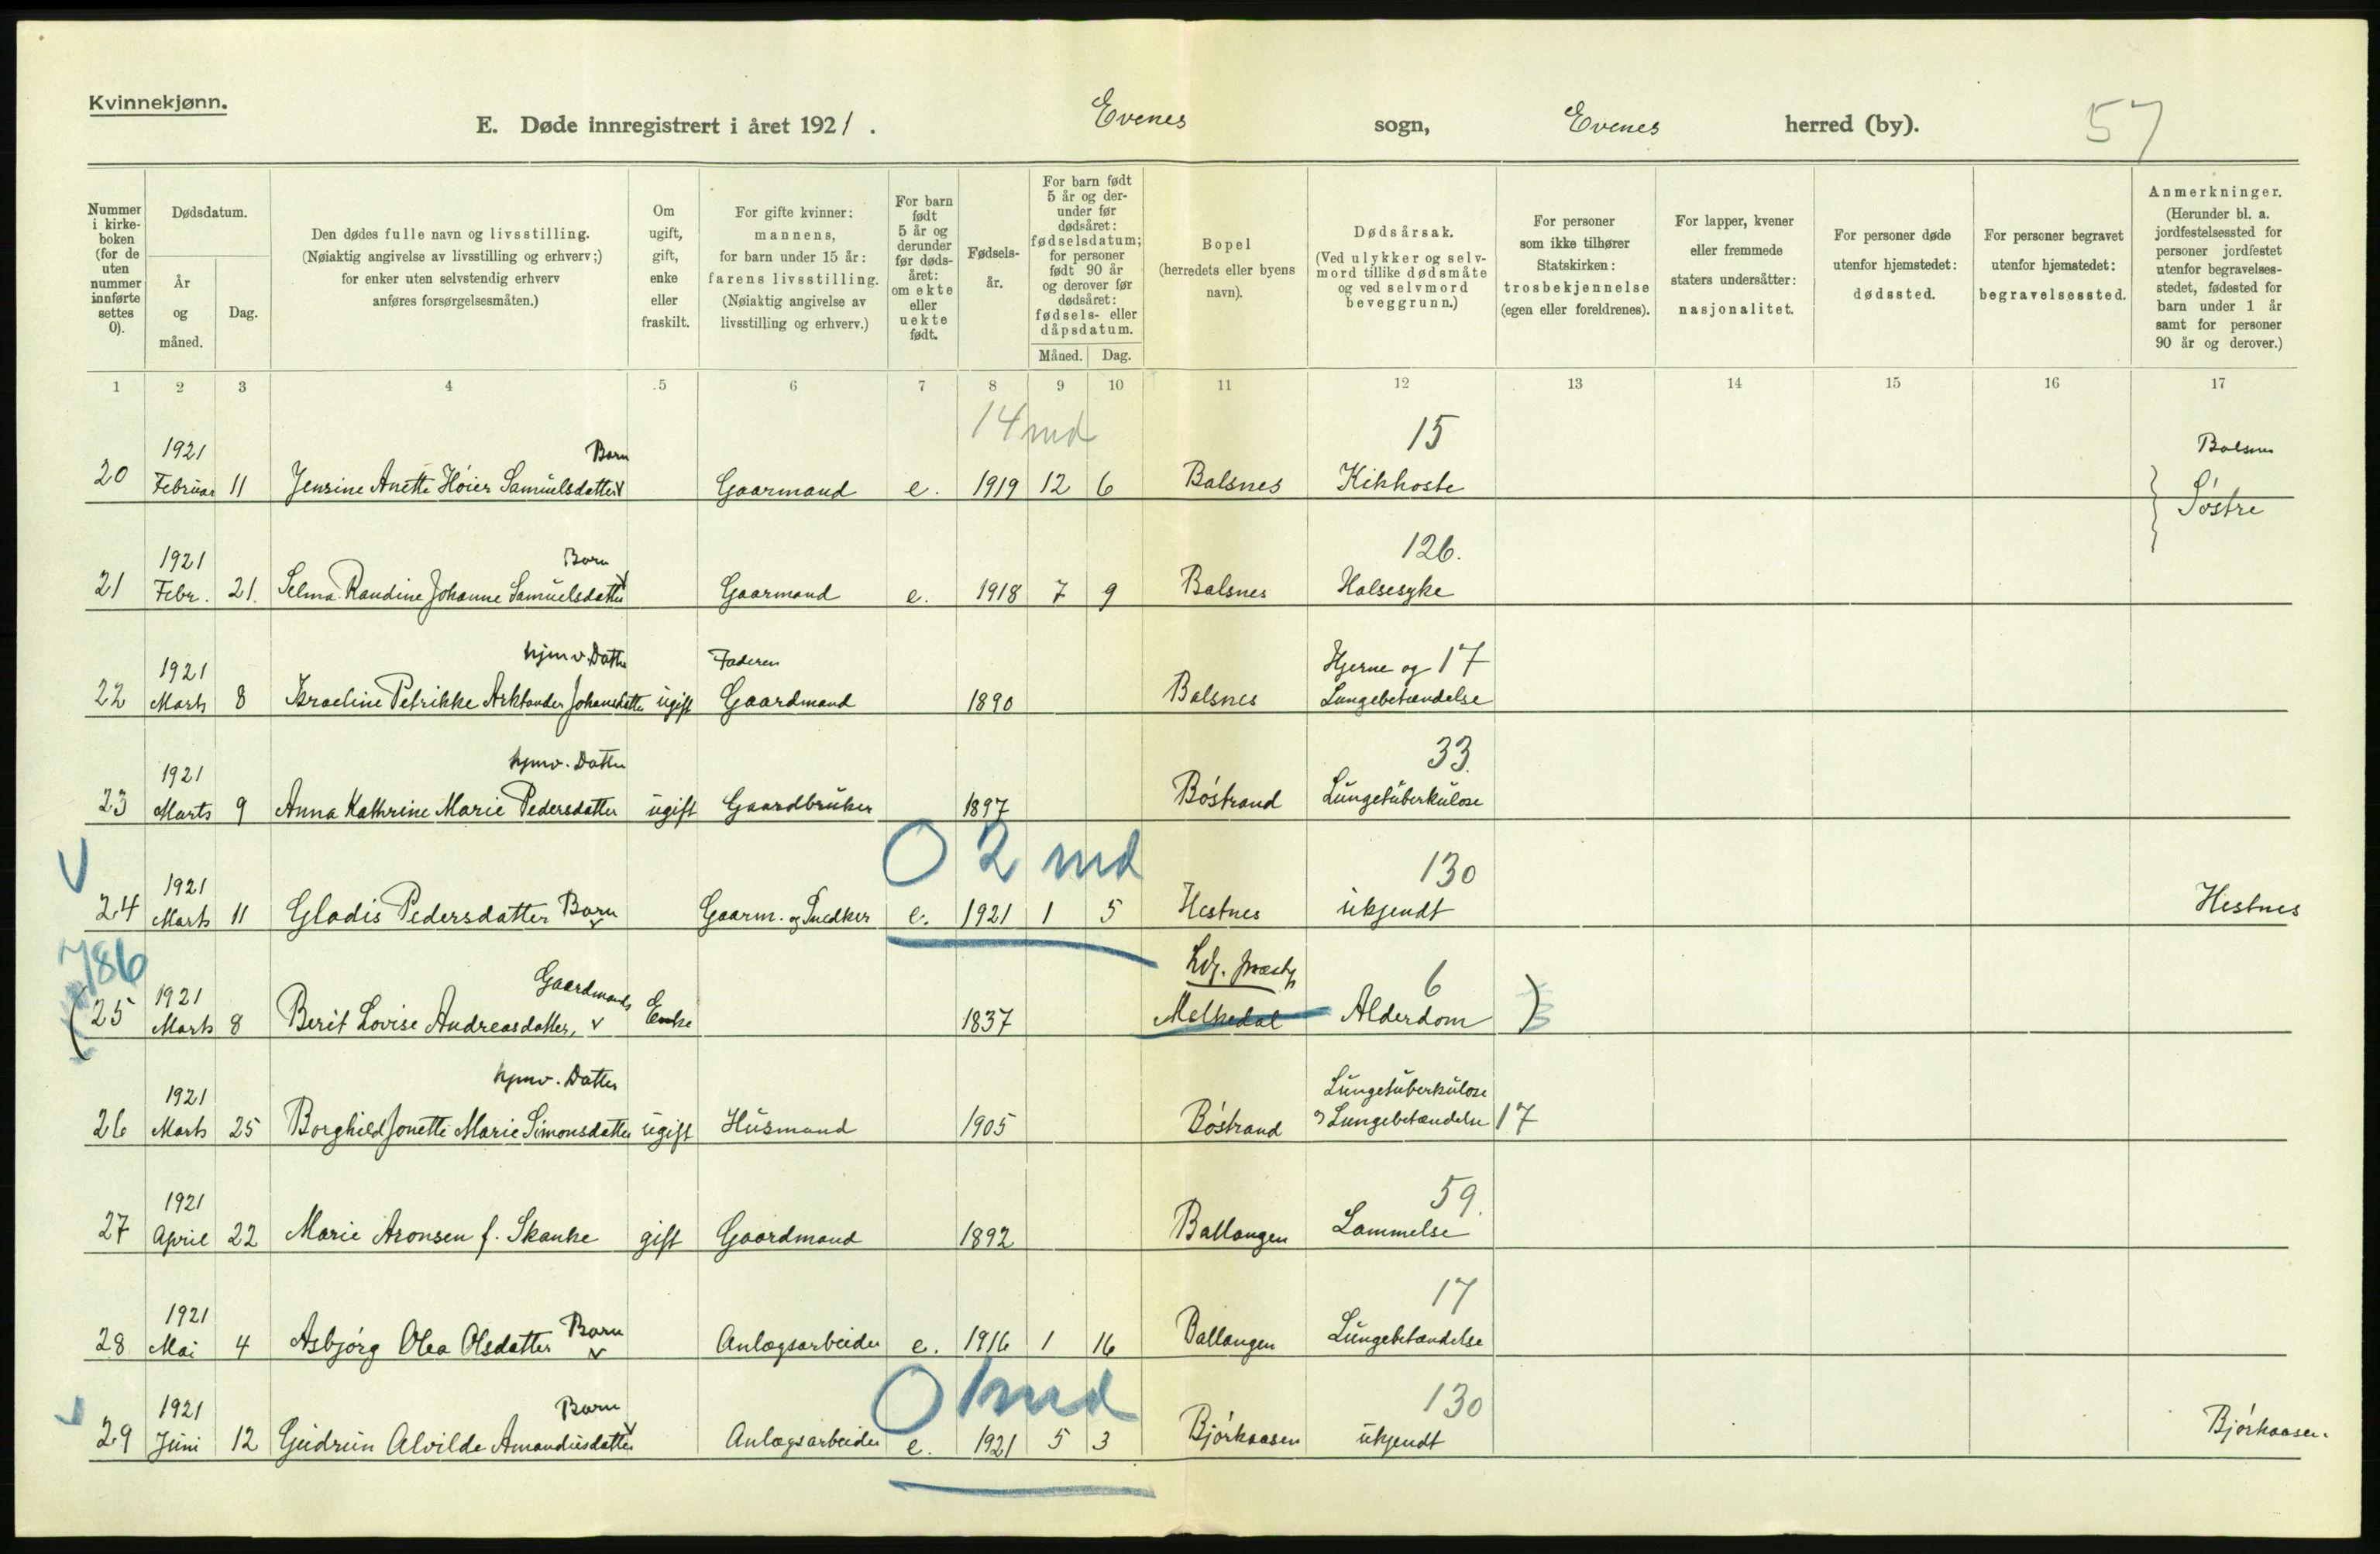 Kvinnekjønn.
E. Døde innregistrert i året 1921. Evenes sogn, Evenes herred (by). 57
Nummer i kirke-boken (for de uten nummer innførte settes 0).
Dødsdatum.
År og måned.
Dag.
Den dødes fulle navn og livsstilling.
(Nøiaktig angivelse av livsstilling og erhverv;)
for enker uten selvstendig erhverv
anføres forsørgelsesmåten.)
Om ugift, gift, enke eller fraskilt.
For gifte kvinner:
mannens,
for barn under 15 år:
farens livsstilling.
(Nøiaktig angivelse av
livsstilling og erhverv.)
For barn født 5 år og derunder før døds-året: om ekte eller uekte født.
Fødsels-år.
For barn født 5 år og der-under før dødsåret: fødselsdatum; for personer født 90 år og derover før dødsåret: fødsels- eller dåpsdatum.
Måned. Dag.
Bopel
(herredets eller byens
navn).
Dødsårsak.
(Ved ulykker og selv-
mord tillike dødsmåte
og ved selvmord
beveggrunn.)
For personer
som ikke tilhører
Statskirken:
trosbekjennelse
(egen eller foreldrenes).
For lapper, kvener
eller fremmede
staters undersåtter:
nasjonalitet.
For personer døde
utenfor hjemstedet:
dødssted.
For personer begravet
utenfor hjemstedet:
begravelsessted.
Anmerkninger.
(Herunder bl. a.
jordfestelsessted for
personer jordfestet
utenfor begravelses-
stedet, fødested for
barn under 1 år
samt for personer
90 år og derover.)
1 2 3 4 5 6 7 8 9 10 11 12 13 14 15 16 17
14 md 15
1921 Barn Balsnes
20 Februar 11 Jensine Anette Høier Samuelsdatter Gaarmand e. 1919 12 6 Balsnes Kikhoste Søstre
1921 Barn 126.
21 Febr. 21. Selma Raudine Johanne Samuelsdatter Gaarmand e. 1918 7 9 Balsnes Halsesyke
1921 hjmv. Datter Faderen Hjerne og 17
22 Marts 8 Israeline Petrikke Arktander Johansdatter ugift Gaardmand 1890 Balsnes Lungebetændelse
1921 hjmv. Datter 33.
23 Marts 9 Anna Kathrine Marie Pedersdatter ugift Gaardbruker 1897 Bøstrand Lungetuberkulose
0 2 md 130
1921
24 Marts 11 Gladis Pedersdatter Barn Gaarm. og Snedker e. 1921 1 5 Hestnes ukjendt Hestnes
786
1921 Gaardmands 6
(25 Marts 8 Berit Lovise Andreasdatter, Enke 1837 Melkedal Alderdom )
1921 hjmv. Datter Lungetuberkulose
26 Marts 25 Borghild Jonette Marie Simonsdatter ugift Husmand 1905 Bøstrand og Lungebetændelse 17
1921 59.
27 April 22 Marie Aronsen f. Skanke gift Gaardmand 1892 Ballangen Lammelse
1921 17
28 Mai 4 Asbjørg Olea Olsdatter Barn Anlægsarbeider e. 1916 1 16 Ballangen Lungebetændelse
0 1 md 130
1921 Barn
29 Juni 12 Gudrun Alvilde Amandusdatter Anlægsarbeider e. 1921 5 3 Bjørkaasen ukjendt Bjørkaasen.